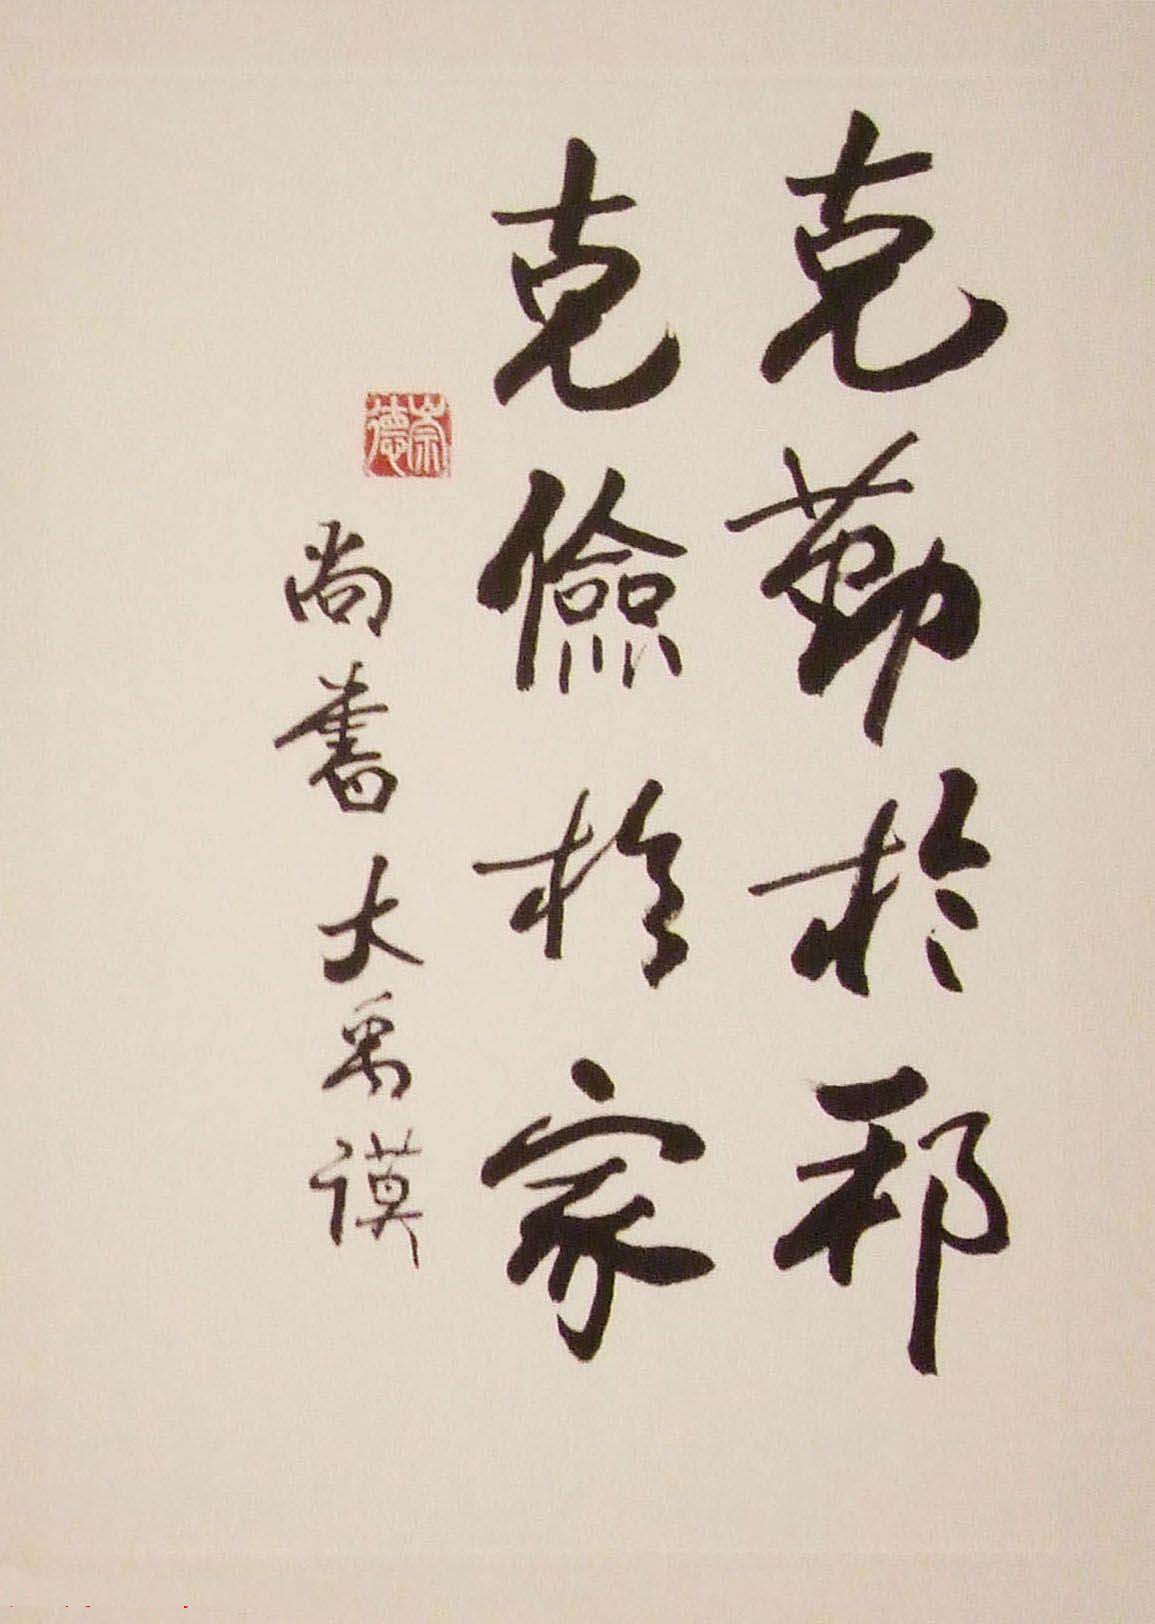 克勤於邦
克儉於家
尚書大禹謨
崇德